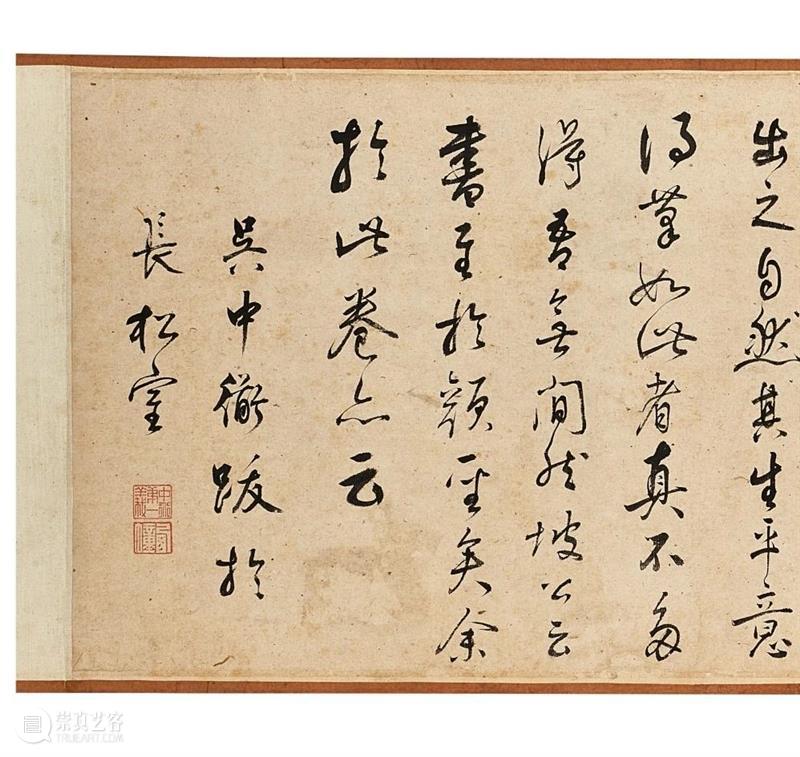 出之自然其生平意
得筆如此者真不多
得吾無間然坡公云
書至於顏聖矣余
於此卷亦云
吳中跋於
長松室
崇真艺客
TRUEART.COM